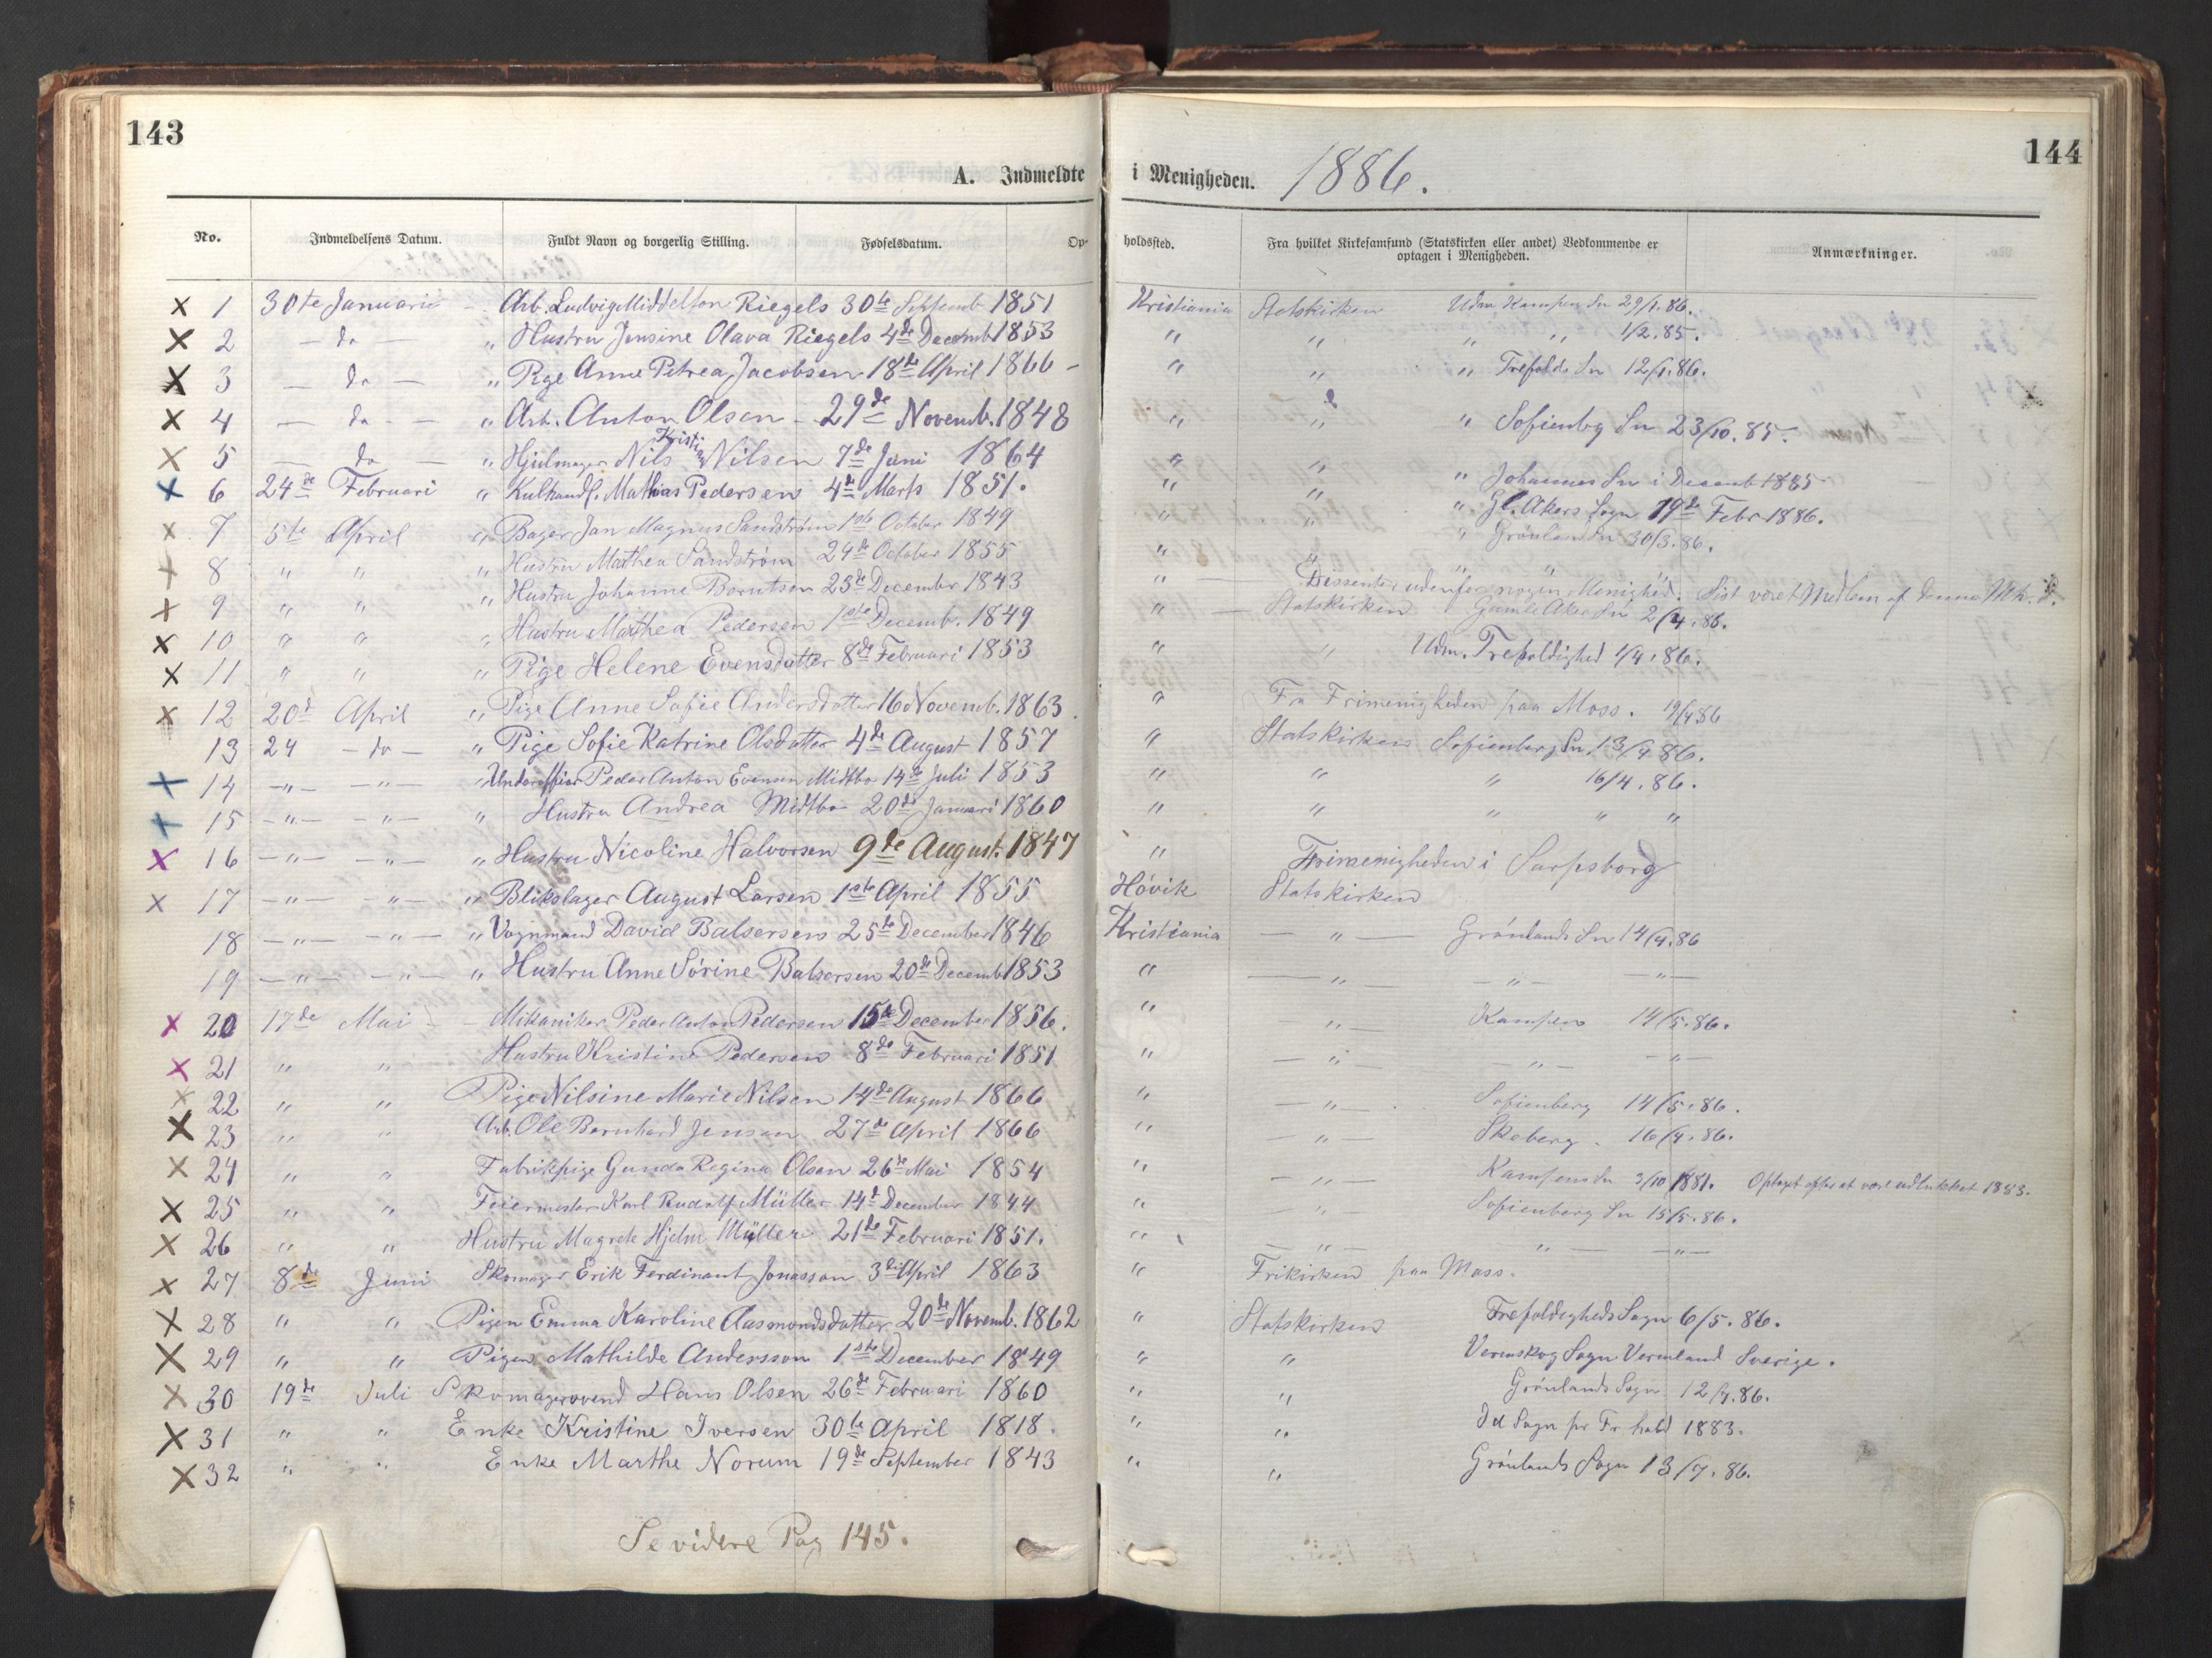 143
144
A. Indmeldte i Menigheden. 1886.
No. Indmeldelsens Datum. Fuldt Navn og borgerlig Stilling. Fødselsdatum. Opholdssted. Fra hvilket Kirkesamfund (Statskirken eller andet) Vedkommende er optagen i Menigheden. Anmærkninger.
x 1 30te Januari - Arb. Ludvig Middelton Riegels 30te Septemb 1851 Kristiania Statskirken Udm. Kampen Sn 29/1.86.
x 2 - do - " Hustru Jensine Olava Riegels 4de Decemb 1853 " " " " 1/2.85.
x 3 - do - " Pige Anne Petrea Jacobsen 18de April 1866 - " " " Trefold. Sn 12/1.86.
x 4 - do - " Arb. Anton Olsen - 29de Novemb. 1848 " " " Sofienbg Sn 23/10.85.
x 5 - do - " Hjulmager Nils Kristian Nilsen 7de Juni 1864 " " " Johannes Sn i Decemb 1885
x 6 24de Februari " Kulhandl. Mathias Pedersen 4de Marts 1851. " " " Gl. Akers Sogn 19de Febr 1886.
x 7 5te April " Bager Jan Magnus Sandstrøm 1ste October 1849 " " " Grønland Sn 30/3.86.
x 8 " " " Hustru Marthea Sandstrøm 24de October 1855 " " " "
x 9 " " " Hustru Johanne Berntsen 23de December 1843 " - Dissenter udenfor nogen Menighed. Sist været Medlem af denne Mk.
x 10 " " " Hustru Marthea Pedersen 1ste Decemb. 1849 " - Statskirken Gamle Aker Sn 2/4.86.
x 11 " " " Pige Helene Evensdatter 8de Februari 1853 " " Udm. Trefoldighed 1/4.86.
x 12 20de April " Pige Anne Sofie Andersdatter 16 Novemb. 1863 " Fra Frimenigheden paa Moss. 19/4 86
13 24 - do - " Pige Sofie Katrine Olsdatter 4de August 1857 " Statskirken Sofienberg Sn 13/4 86.
x 14 - " - - " - " Underoffiser Peder Anton Evensen Midtbø 14de Juli 1853 " " " 16/4.86.
x 15 - " - - " - " Hustru Andrea Midtbø 20de Januari 1860 " " " " "
x 16 - " - - " - " Hustru Nicoline Halvorsen 9de August. 1847 " Frimenigheden i Sarpsborg
x 17 - " - - " - " Blikslager August Larsen 1ste April 1855 Høvik Statskirken
18 - " - - " - " Vognmand David Balsersen 25te December 1846 Kristiania - " - Grønlands Sn 14/4.86
19 - " - - " - " Hustru Anne Sørine Balsersen 20de Decemb 1853 " - " - - " - - " -
x 20 17de Mai - Mikaniker Peder Anton Pedersen 15de December 1856. " " - Kampen 14/5.86.
x 21 " " Hustru Kristine Pedersen 8de Februari 1851 " - " - - " - - " -
x 22 " " Pige Nilsine Marie Nilsen 14de August 1866 " - " - Sofienberg 14/5.86.
x 23 " " Arb. Ole Bernhard Jensen 27de April 1866 " - " - Skeberg. 16/4.86.
x 24 " " Fabrikpige Gunda Regine Olsen 26de Mai 1854 " - " - Kampens Sn 3/10 1881. Optagt efter at være udlukket 1883.
x 25 " " Feiermester Karl Rudolf Müller 14de December 1844 " - " - Sofienberg Sn 15/5.86.
x 26 " " Hustru Magrete Hjelm Müller 21de Februari 1851. " - " - " - - " -
x 27 8de Juni Skomager Erik Ferdinant Jonasson 3die April 1863 " Frikirken paa Moss.
x 28 " " Pigen Emma Karoline Aasmondsdatter 20de Novemb. 1862 " Statskirken Trefoldigheds Sogn 6/5.86.
x 29 " " Pigen Mathilde Andersson 1ste December 1849 " " Vermskog Sogn Vermland Sverige.
x 30 19de Juli Skomagersvend Hans Olsen 26de Februari 1860 " " Grønlands Sogn 12/7.86.
x 31 " " Enke Kristine Iversen 30te April 1818. " " Id Sogn pr Fr.hald 1883.
x 32 " " Enke Marthe Norum 19de September 1843 " " Grønlands Sogn 13/7.86.
Se videre Pag 145.